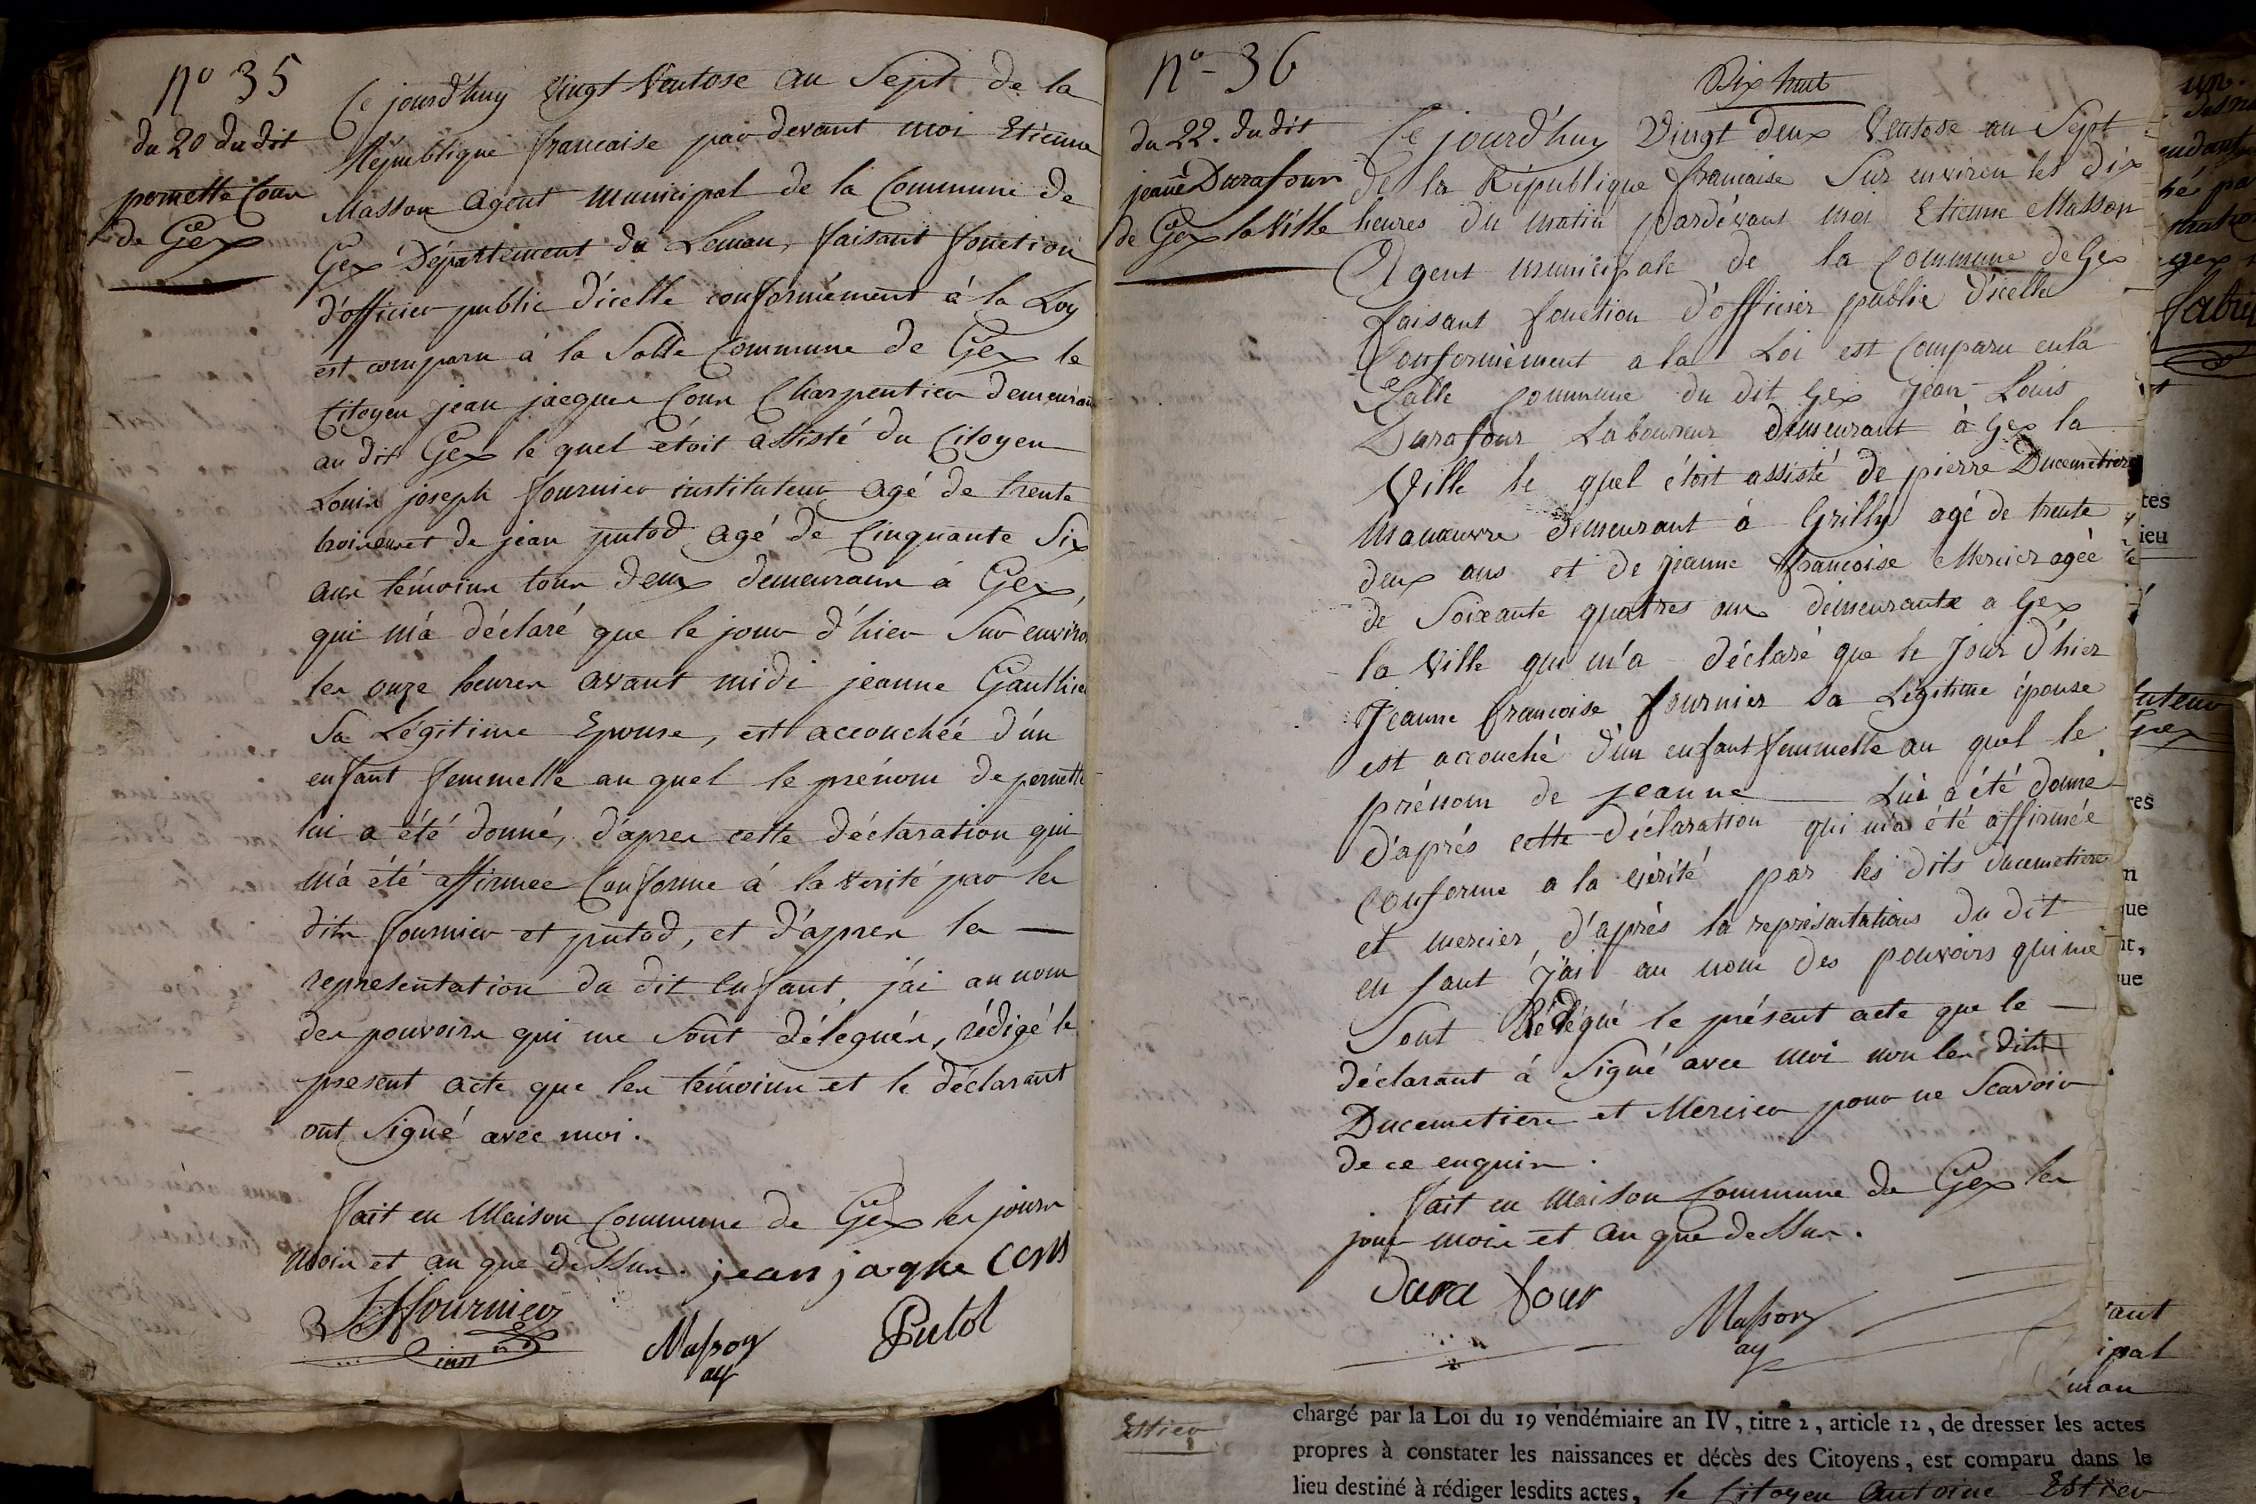 nº 35
du 20 du dit
pernette Cour
de Gex
Ce jourd'huy Vingt Ventose an Sept de la
République francaise par devant moi Etienne
Masson agent municipal de la Commune de
Gex Département du Leman, faisant fonction
d'officier public d'icelle conformément á la Loy
est comparu á la Salle Commune de Gex le
Citoyen jean jacques Cour Charpentier demeurant
au dit Gex le quel étoit assisté du Citoyen
Louis joseph fournier instituteur agé de trente
trois ans et de jean putod agé de Cinquante Six
ans témoins tous deux demeurans á Gex,
qui m'a déclaré que le jour d'hier Sur environ
les onze heures avant midi jeanne Gauthier
Sa Légitime Epouse, est accouchée d'un
enfant femmelle au quel le prénom de pernette
lui a été donné, d'apres cette déclaration qui
m'á été affirmee Conforme á la verité par les
dits fournier et putod, et d'apres la —
representation du dit enfant, j'ai au nom
des pouvoirs qui me Sont délegués, rédigé le
present acte que les témoins et le déclarant
ont Signé avec moi.
fait en Maison Commune de Gex les jours
mois et an que dessus. jean jaque Cours
LJfournier
inst
Masson
ag
Putod
nº - 36
du 22. du dit
jeanne Durafour
de Gex la Ville
Dix huit
Ce jourd'huy Vingt deux Ventose an Sept
de la République francaise Sur environ les dix
heures du matin pardévant moi Etienne Masson
Agent municipale de la Commune de Gex
faisant fonction d'officier public d'icelle
Conformément a la Loi est Comparu en la
Salle Commune du dit Gex Jean Louis
Durafour Laboureur demeurant à Gex la
Ville le quel étoit assisté de pierre Ducemetiere
Manœuvre demeurant á Grilly agé de trente
deux ans et de jeanne francoise Mercier agée
de Soixante quatres ans demeurante a Gex
la Ville qui m'a déclaré que le Jour d'hier
Jeanne francoise fournier Sa Légitime épouse
est accouché d'un enfant femmelle au quel le
prénom de jeanne — Lui a été donné
d'aprés cette déclaration qui m'a été affirmée
Conforme a la vérité par les dits ducemetiere
et mercier, d'aprés la représantations du dit
en fant j'ai au nom des pouvoirs qui me
Sont Rédégué le présent acte que le —
déclarant á Signé avec moi non les dits
Ducemetiere et Mercier pour ne Scavoir
de ce enquis.
fait en Maison Commune de Gex les
jour mois et an que dessus.
dura four
Masson
ag
tes
ieu
tuteur
Gex
res
que
nt,
que
ipal
Estier
chargé par la Loi du 19 vendémiaire an IV, titre 2, article 12, de dresser les actes
propres à constater les naissances et décès des Citoyens, est comparu dans le
lieu destiné à rédiger lesdits actes, le Citoyen Antoine Estier